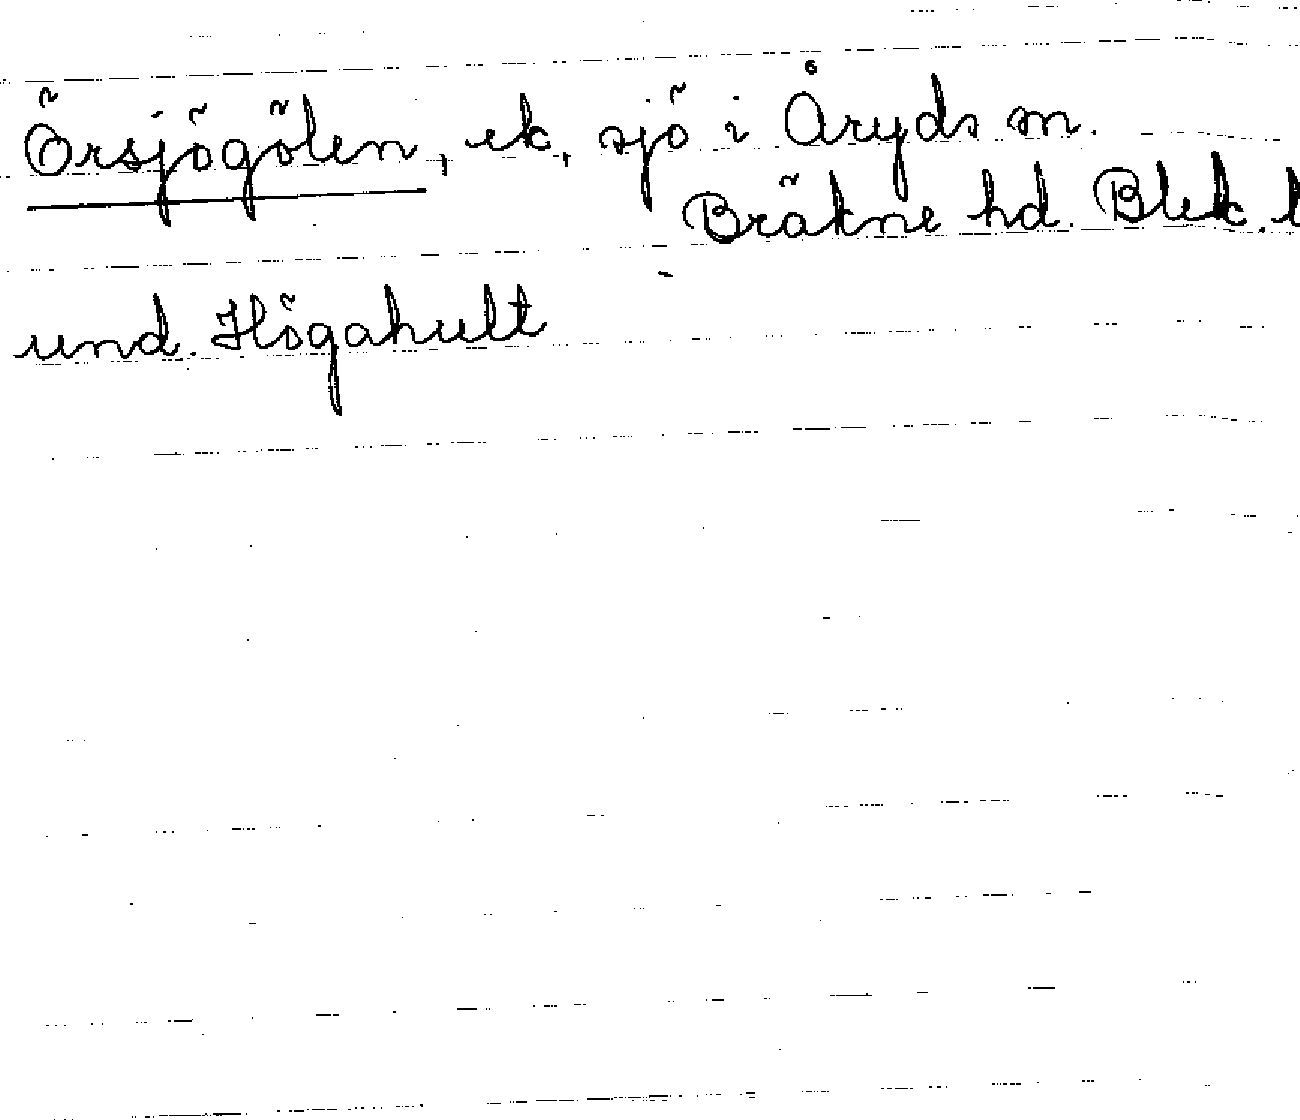 Örsjögölen, ek, sjö i Åryds sn.
Bräkne hd. Blek. l
und. Högahult